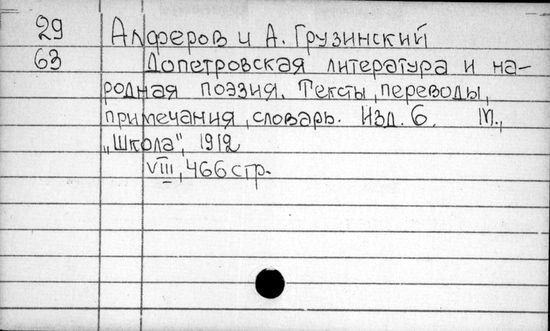 29 Алферов и А. Грузинский
63 Допетровская литература и на-
родная поэзия. Тексты, переводы,
примечания, словарь. Изд. 6. М.,
„Школа", 1912
VIII, 466 стр.